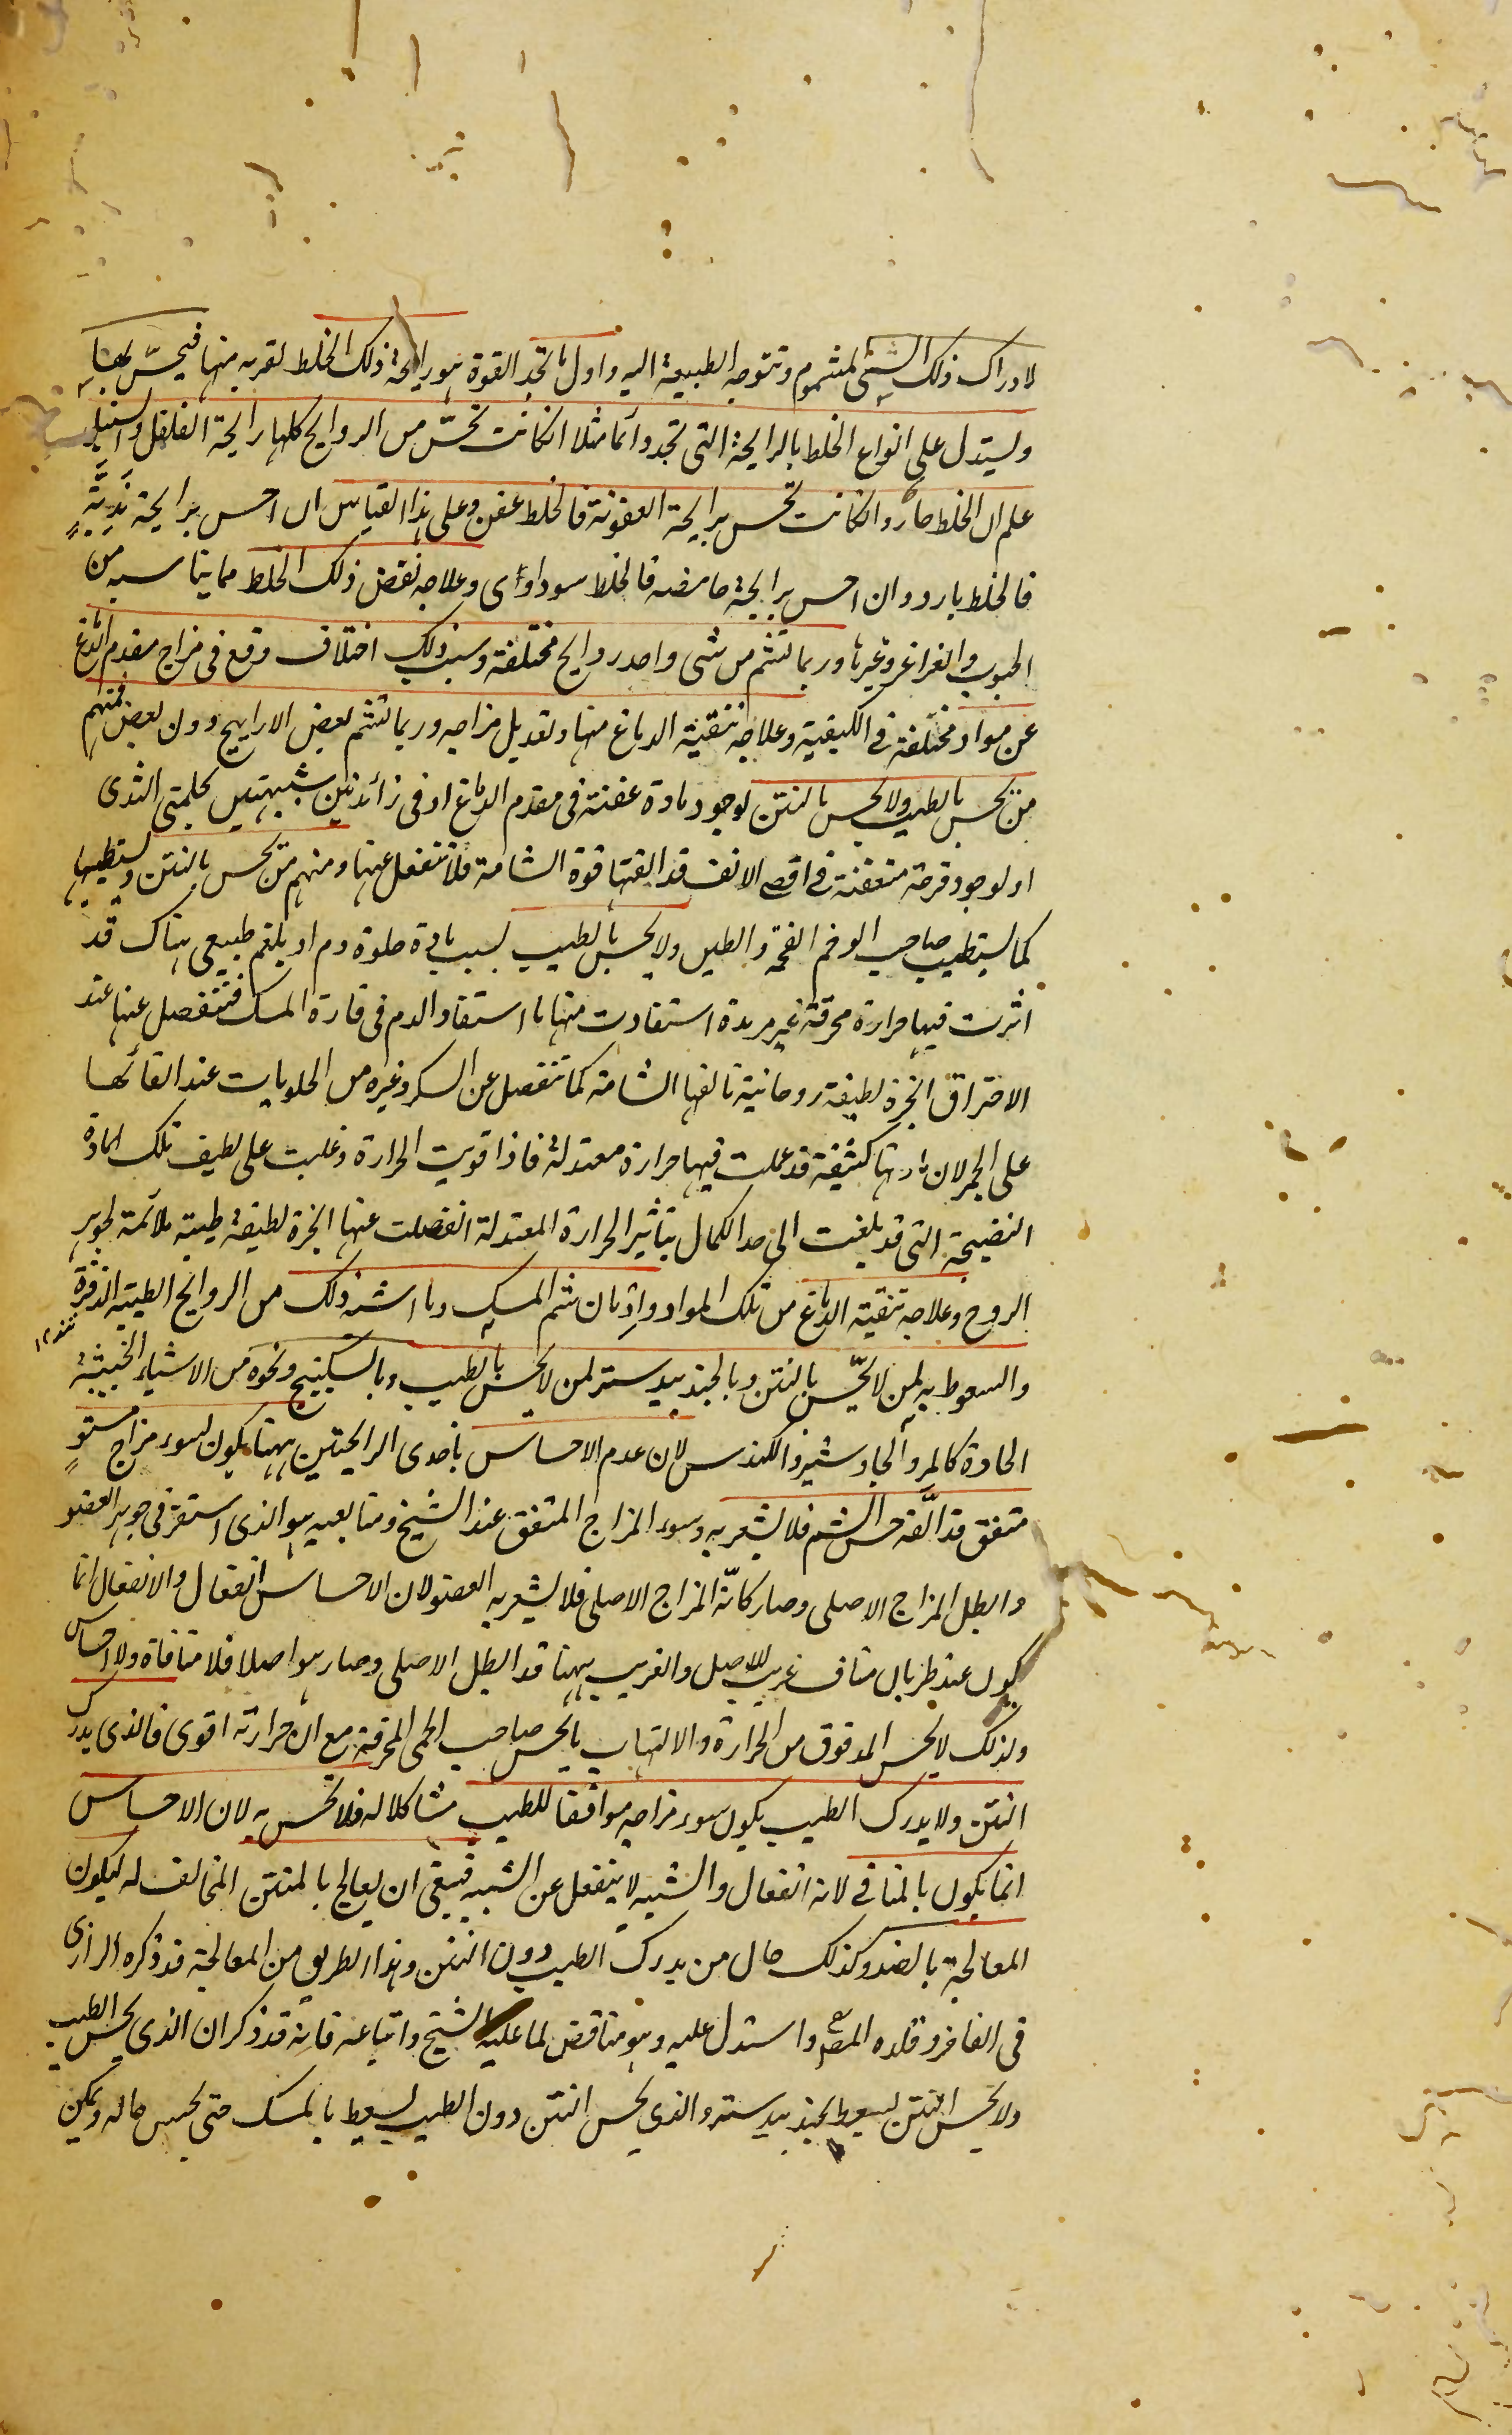 لادراك ذلك الشئ المشموم وتتوجه الطبيعة اليه واول ما تجد القوة هو رايحة ذلك الخلط لقربه منها فيحسّ بها
ويستدل على انواع الخلط بالرايحة التى تجد دائما مثلا ان كانت تحسّ من الروايح كلها رايحة الفلفل والسنبل
علم ان الخلط حار وان كانت تحس برايحة العفونة فالخلط عفن وعلى هذا القياس ان احس برايحة نديّة
فالخلط بارد وان احس برايحة حامضه فالخلط سوداوى وعلاجه نفض ذلك الخلط مما يناسبه من
الحبوب والغراغر وغيرها وربما تشم من شى واحد روايح مختلفة وسبب ذلك اختلاف وقع فى مزاج مقدم الدماغ
عن مواد مختلفة فى الكيفية وعلاجه تنقية الدماغ منها وتعديل مزاجه وربما تشم بعض الاراييح دون بعض فمنهم
من يحس بالطيب ولا يحس بالنتن لوجود مادة عفنة فى مقدم الدماغ او فى زائدتين شبيهتين بحلمتى الثدى
او لوجود قرحة متعفنة فى اقصى الانف قد الفتها قوة الشامة فلا تنفعل عنها ومنهم من يحس بالنتن ويستطيبها
كما يستطيب صاحب الوخم الفحمة والطين ولا يحس بالطيب لسبب مادة حلوة دم او بلغم طبيعى هناك قد
اثرت فيها حرارة محرقة غير مردة استفادت منها ما استفاد الدم فى فارة المسك فتنفصل عنها عند
الاحتراق ابخرة لطيفة روحانية تالفها الشامة كما تنفصل عن السكر وغيره من الحلويات عند القائها
على الجمر لان مادتها كثيفة قد عملت فيها حرارة معتدلة فاذا قويت الحرارة وغلبت على لطيف تلك المادة
النضيجة التى قد بلغت الى حد الكمال بتاثير الحرارة المعتدلة انفصلت عنها ابخرة لطيفة طيبة ملائمة لجوهر
الروح وعلاجه تنقية الدماغ من تلك المواد وادمان شم المسك وما اشبه ذلك من الروايح الطيبة الذفرة
والسعوط به لمن لا يحّس بالنتن وبالجند بيدستر لمن لا يحس بالطيب وبالسكبينج ونحوه من الاشياء الخبيثة
الحادة كالمر والجاوشير والكندس لان عدم الاحساس باحدى الرايحتين ههنا يكون لسوء مزاج مستوٍ
متفق قد الَّفه حس الشم فلا يشعر به وسوء المزاج المتفق عند الشيخ ومتابعيه هو الذى استقر فى جوهر العضو
وابطل المزاج الاصلى وصار كانّه المزاج الاصلى فلا يشعر به العضو لان الاحساس انفعال والانفعال انما
يكون عند طريان مناف غريب للاصل والغريب ههنا قد ابطل الاصلى وصار هو اصلا فلا منافاة ولا احساس
ولذلك لا يحس المدقوق من الحرارة والالتهاب ما يحس صاحب الحمى المحرقة مع ان حرارته اقوى فالذى يدرك
النتن ولا يدرك الطيب يكون سوء مزاجه موافقا للطيب مشاكلا له فلا تحس به لان الاحساس
انما يكون بالمنافى لانه انفعال والشبيه لا ينفعل عن الشبيه فينبغى ان يعالج بالمنتن المخالف له ليكون
المعالجة بالضد وكذلك حال من يدرك الطيب دون النتن وهذا الطريق من المعالجة قد ذكره الرازى
فى الفاخر وقلده المص واستدل عليه وهو مناقض لما عليه الشيخ واتباعه فانه قد ذكر ان الذى يحس الطيب
ولا يحس النتن يسعط بجند بيدستر والذى يحس النتن دون الطيب يسعط بالمسك حتى يحسن حاله ويمكن